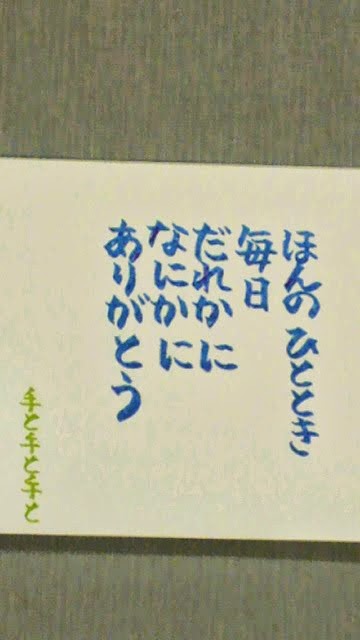 ほんの ひととき
毎日
だれかに
なにかに
ありがとう
手と手と手と